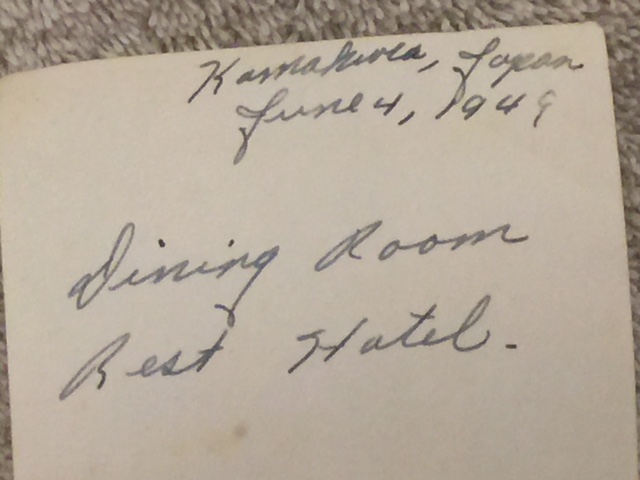 Kamakura, Japan
June 4, 1949
Dining Room
Rest Hotel.